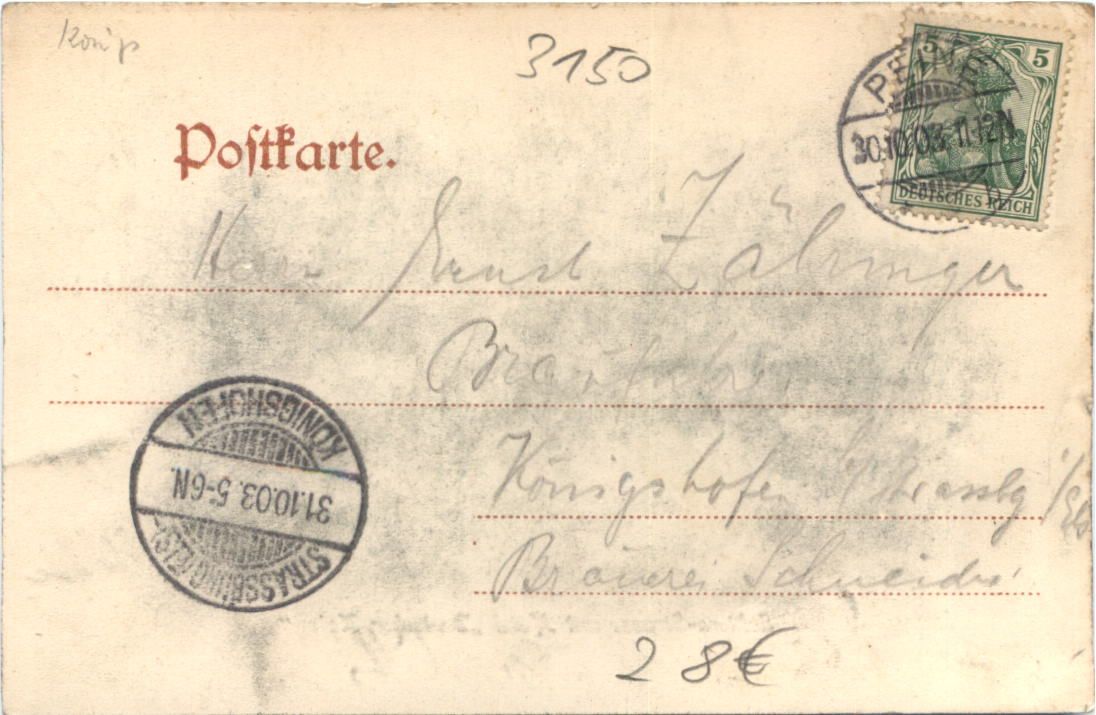 3150
5 5
PEINE
30.10.03. 11-12N
DEUTSCHES REICH
Postkarte.
Herrn Ernst Zähringer
Königshofen Strassbg i/Els
Brauerei Schneider
KÖNIGSHOFEN
31.10.03. 5-6N.
STRASSBURG (ELS)
28€